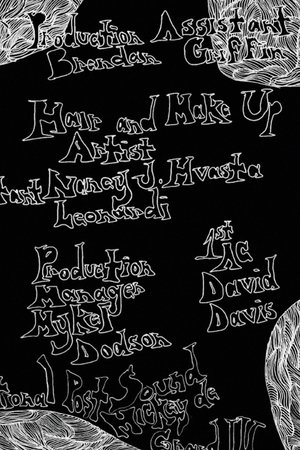 Production Assistant
Brendan Griffin
Hair and Make Up
Artist
tant Nancy J. Hvasta
Leonardi
1st
AC
David
Davis
Production
Manager
Mykel
Dodson
tional Post Sound
Mickey de
Grand IV